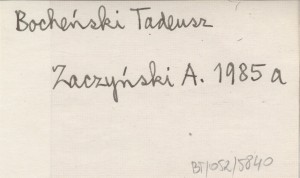 Bocheński Tadeusz
Zaczyński A. 1985 a
BF/052/5840